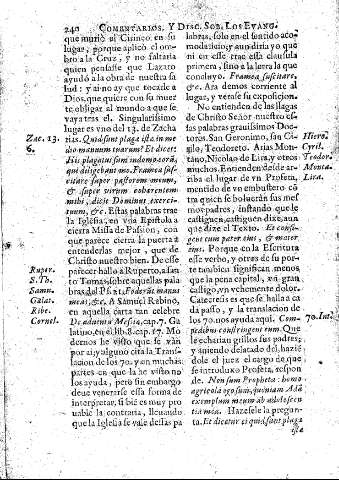 240 COMENTARIOS, Y DISC. SOB. LOS EVANG.
que murió el Cirineo en su
lugar, porque aplicó el om-
bro a la Cruz, y no faltaria
quien pensasse que Lazaro
ayudó a la obra de nuestra sa
lud: y assi no ay que tocarle a
Dios, que quiere con su muer
te obligar al mundo a que se
vaya tras el. Singularissimo
lugar es vno del 13. de Zacha
rias. Quid sunt plagæ istæ in me-
dio manuum tuarum? Et dicet:
His plagatus sum in domo eorũ,
qui diligebant me. Framea sus-
citare super pastorem meum,
& super virum cohærentem
mihi, dicit Dominus exerci-
tuum, &c. Estas palabras trae
la Iglesia, en vna Epistola a
cierta Missa de Passion, con
que parece cierra la puerta à
entenderlas mejor, que de
Christo nuestro bien. De esse
parecer hallo à Ruperto, a san
to Tomas, sobre aquellas pala
bras del Ps. 21. Foderũt manus
meas, &c. A Samuel Rabino,
en aquella carta tan celebre
De adventu Messiæ, cap. 7. Ga
latino, en el lib. 8. cap. 17. Mo
dernos he visto que se van
por ai; y alguno cita la Trans
lacion de los 70. y en muchas
partes en que la he visto no
los ayuda, pero sin embargo
deue venerarse essa forma de
interpretar, si bié es muy pro
uable la contraria, lleuando
que la Iglesia se vale dessas pa
Zac. 13.
6.
Ruper.
S. Th.
Samu.
Galat.
Ribe.
Cornel.
labras, solo en el sentido aco-
modaticio; y aun diria yo que
ni en esse trae essa clausula
primera, sino a la era la que
concluyo. Framea suscitare,
&c. Ara demos corriente al
lugar, y verase su exposicion.
No entienden de las llagas
de Christo Señor nuestro es-
tas palabras grauissimos Doc-
tores. San Geronimo, san Ci-
rilo, Teodoreto, Arias Mon-
tano, Nicolas de Lira, y otros
muchos. Entienden desde arri
ba el lugar de vn Profeta,
mentido de vn embustero cõ
tra quien se boluerán sus mes
mos padres, instando que le
castiguen, castiguen dixe, aun
que dize el Texto. Et confi-
gent eum pater eius, & mater
eius. Porque en la Escritura
esse verbo, y otros de su por-
te tambien significan menos
que la pena capital, vn gran
castigo, vn vehemente dolor.
Catecresis es que se halla a ca
da passo, y la translacion de
los 70. nos ayuda aqui. Com-
pedibus constringent eum. Que
le echarian grillos sus padres;
y auiendo delatado del, hazie
dole el juez el cargo de que
se introduce Profeta, respon
de. Non sum Propheta: homo
agricola ego sum, quoniam Adã
exemplum meum ab adolescen
tia mea. Hazesele la pregun-
ta. Et dicetur ei quid sunt plagæ
istæ
Hiero.
Cyril.
Teodor.
Monta.
Lira.
70. Int.